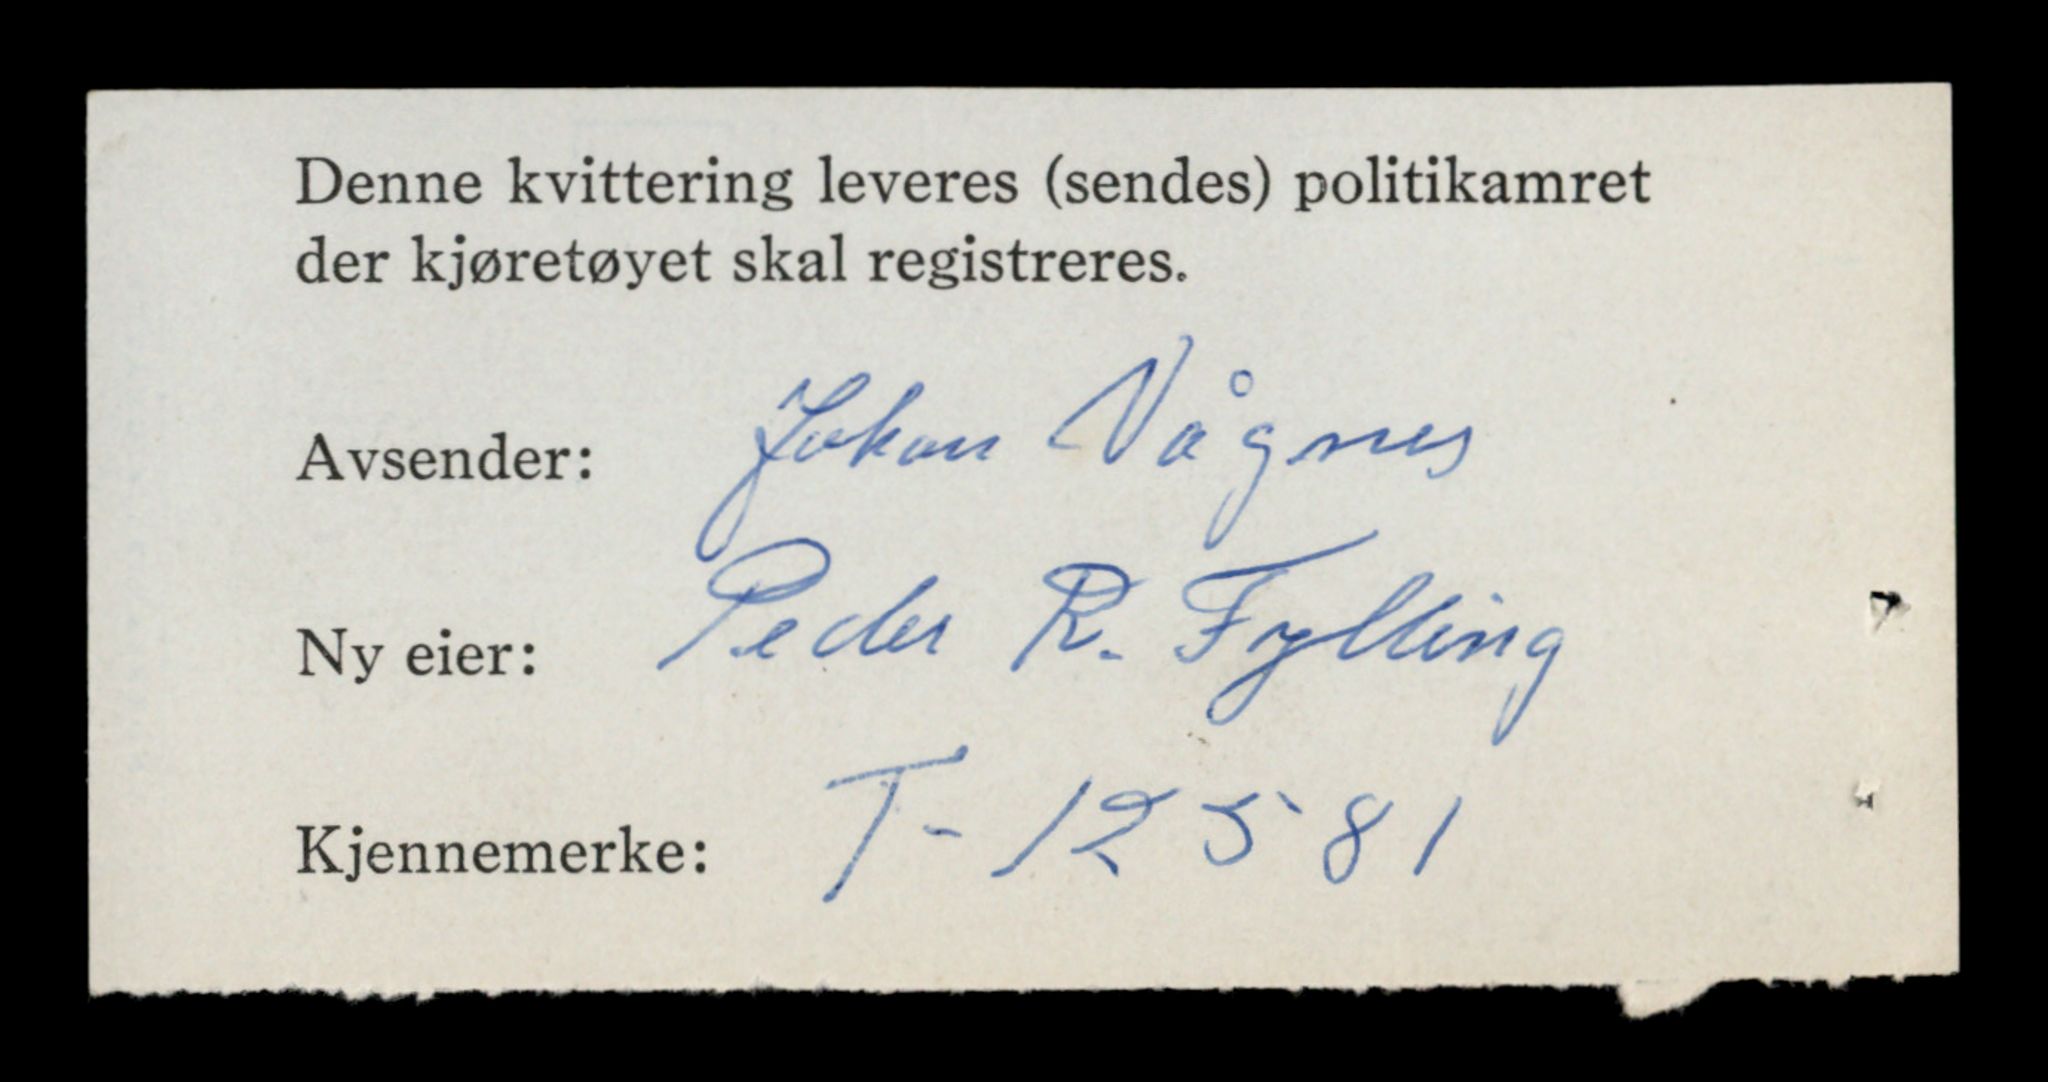 Denne kvittering leveres (sendes) politikamret
der kjøretøyet skal registreres.
Avsender: Johan Vågnes
Ny eier: Peder R. Fylling
Kjennemerke: T-12581